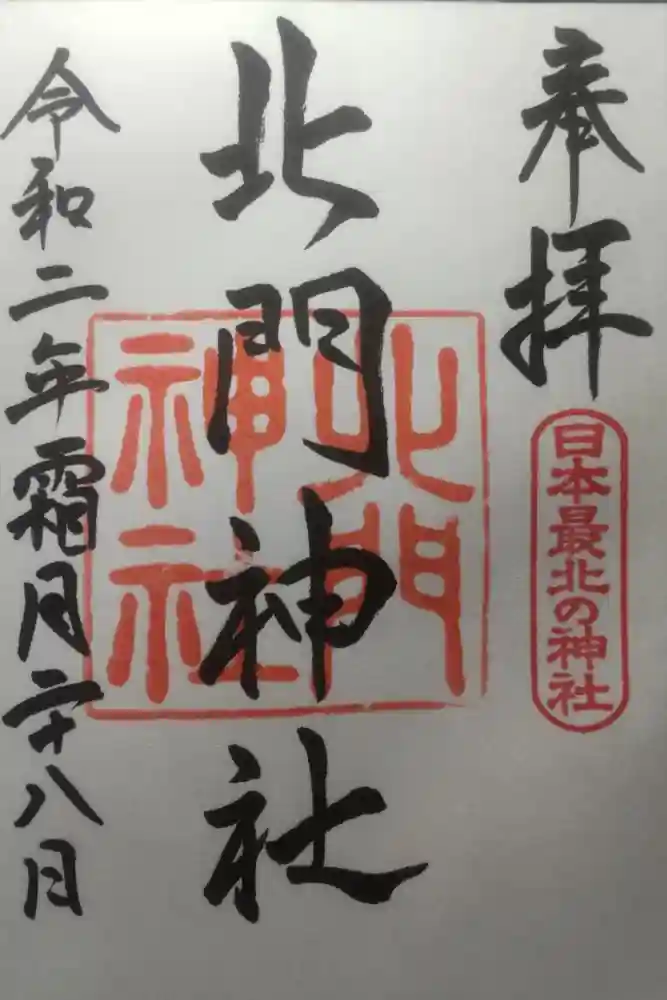 奉拝
日本最北の神社
北門神社
北門
神社
令和二年霜月二十八日